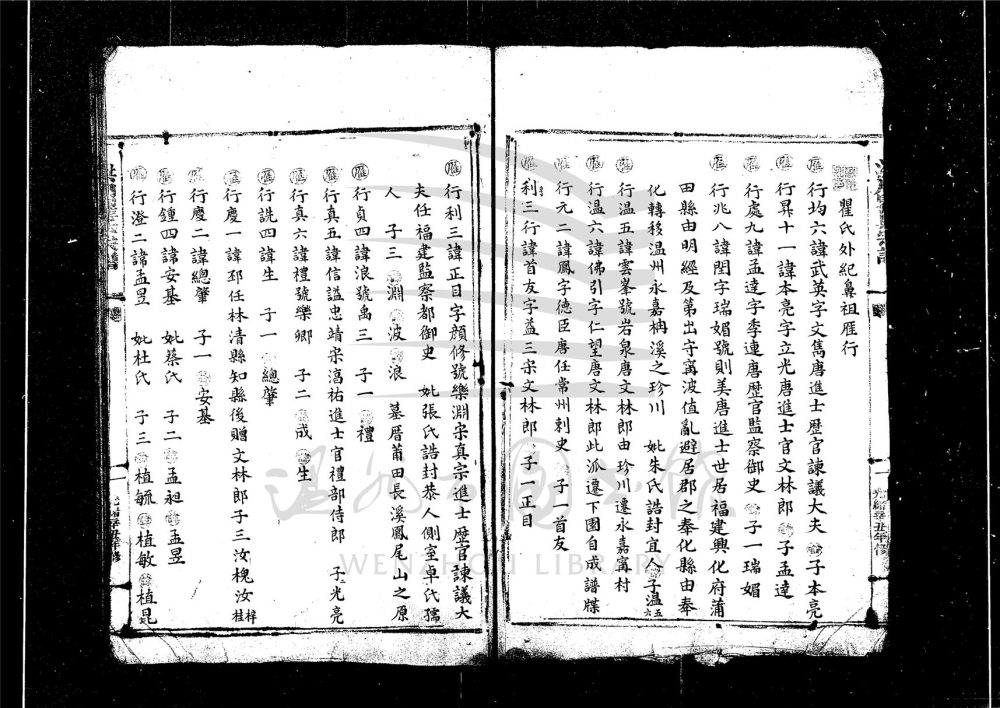 瞿氏外紀鼻祖雁行
雁行均六諱武英字文雋唐進士歷官諫議大夫 子本亮
雁行昇十一諱本亮字立光唐進士官文林郎 子孟達
雁行處九諱孟達字李連唐歷官監察御史 子一瑞媚
雁行兆八諱閏字瑞媚號則美唐進士世居福建興化府蒲
田縣由明經及第出守寗波值亂避居郡之奉化縣由奉
化轉移溫州永嘉柟溪之珍川 妣朱氏誥封宜人 子溫五六
雁行溫五諱雲峯號岩泉唐文林郎由珍川遷永嘉寗村
雁行溫六諱佛引字仁望唐文林郎此派遷下園自成譜牒
雁行元二諱鳳字德臣唐任常州刺史 子一首友
雁利三行諱首友字益三宋文林郎 子一正目
雁行利三諱正目字顔修號樂淵宋真宗進士歷官諫議大
夫任福建監察都御史 妣張氏誥封恭人側室卓氏孺
人 子三 淵 波 浪 墓厝莆田長溪鳳尾山之原
雁行貞四諱浪號禹三 子一 禮
雁行真五諱信謚忠靖宋淳祐進士官禮部侍郎 子光亮
雁行真六諱禮號樂卿 子二 成 生
雁行詵四諱生 子一 總肇
雁行慶一諱邳任林清縣知縣後贈文林郎子三汝槐汝梓桂
雁行慶二諱總肇 子一 安基
雁行鍾四諱安基 妣蔡氏 子二 孟昶 孟昱
雁行澄二諱孟昱 妣杜氏 子三 植毓 植敏 植昆
一 光緒辛丑年修
一 光緒辛丑年修
溫州圖書館
WENZHOU LIBRARY